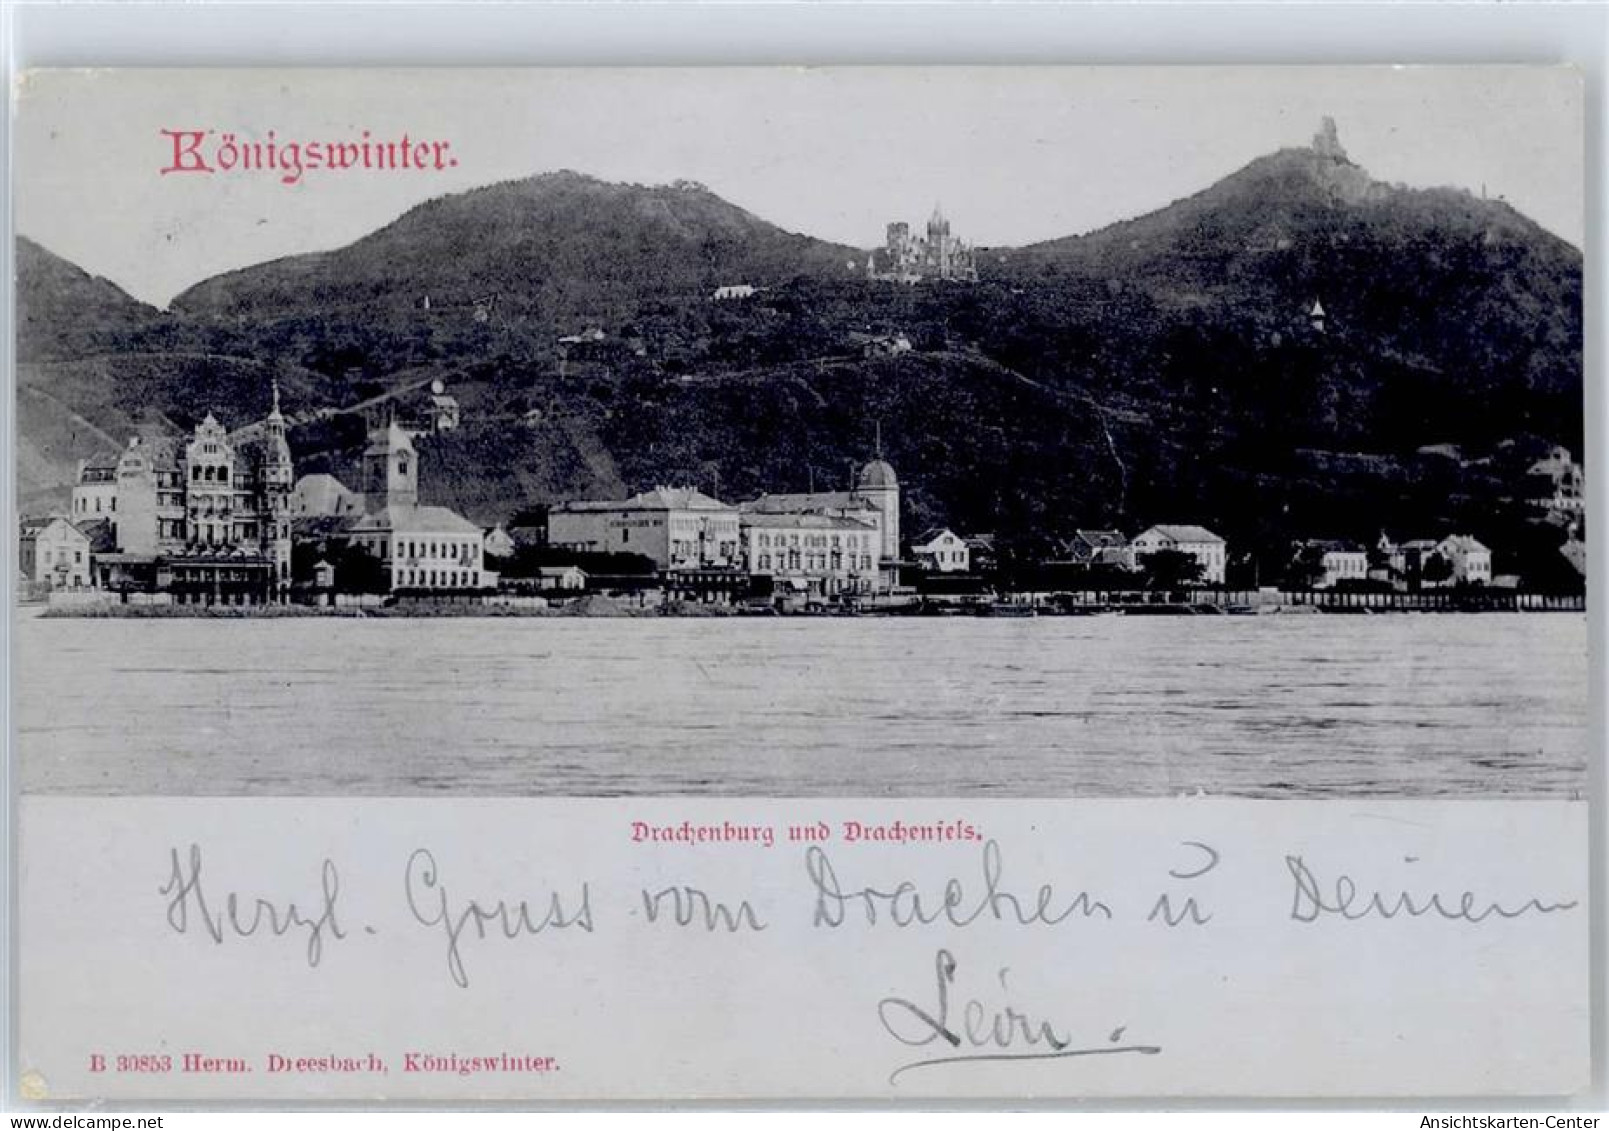 Königswinter.
Drachenburg und Drachenfels.
Herzl. Gruss vom Drachen u Deinem
Léon.
B 30853 Herm. Dreesbach, Königswinter.
Ansichtskarten-Center